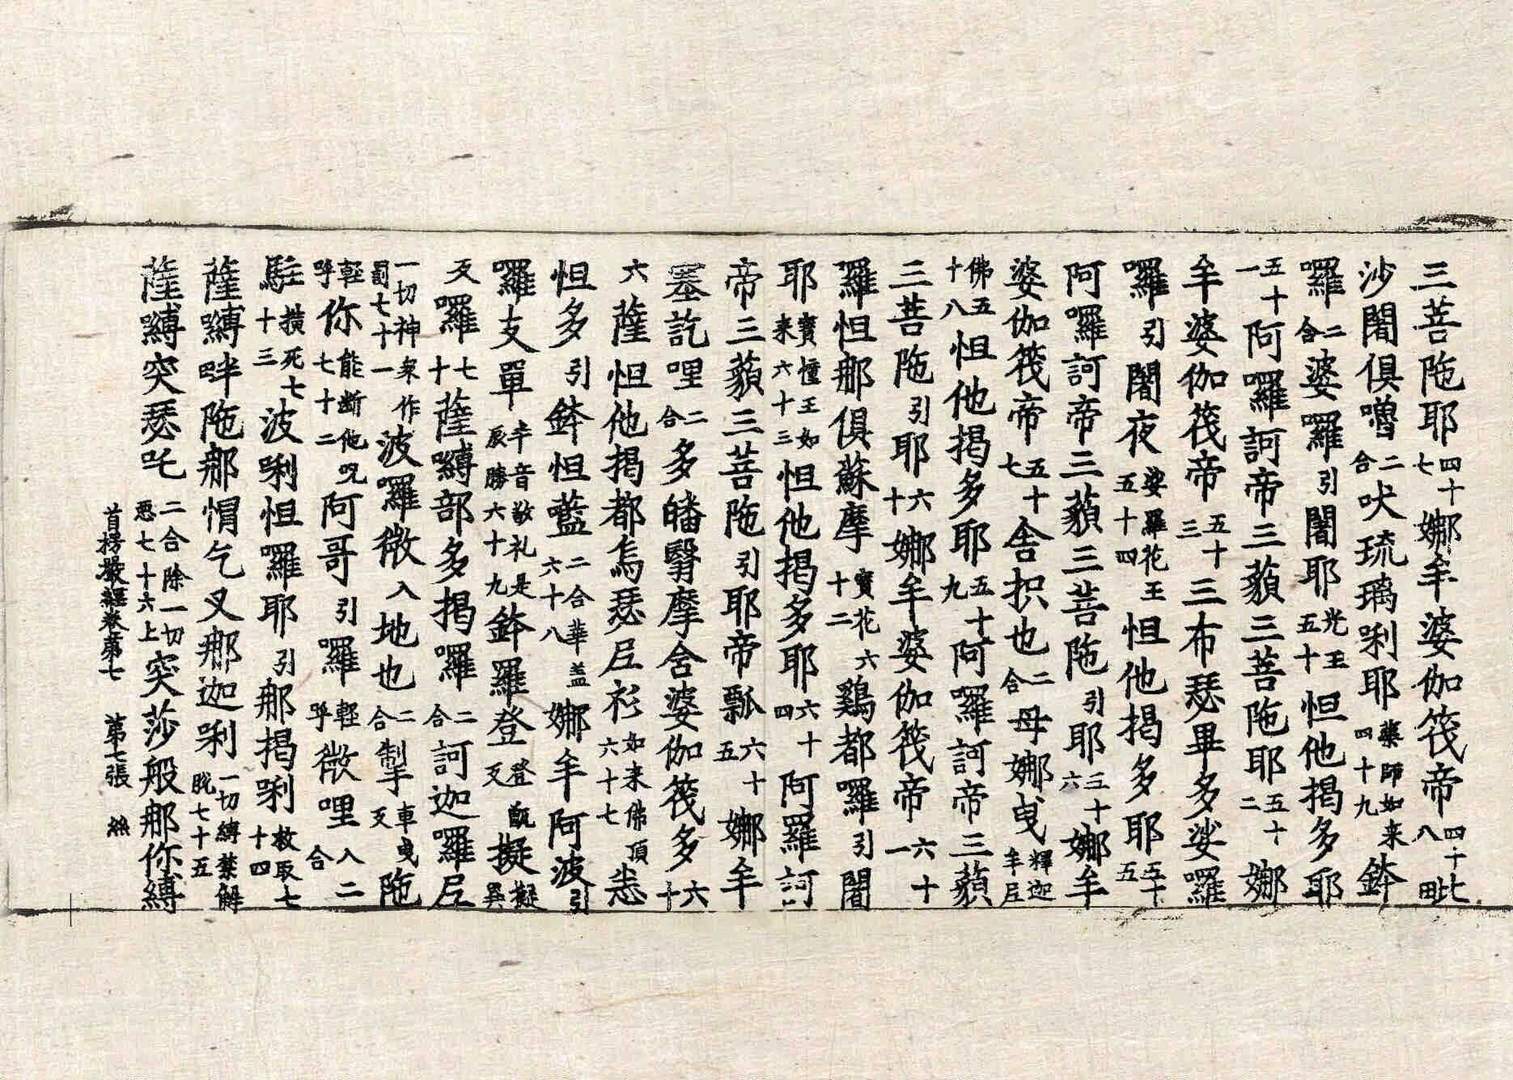 三菩陁耶四十七娜牟婆伽筏帝四十八毗
沙闍俱嚕二合吠琉璃唎耶藥師如來四十九鉢
囉二合婆囉引闍耶光王五十怛他揭多耶
五十一阿囉訶帝三藐三菩陁耶五十二娜
牟婆伽筏帝五十三三布瑟畢多娑囉
囉引闍夜娑羅花王五十四怛他揭多耶五十五
阿囉訶帝三藐三菩陁引耶三十六娜牟
婆伽筏帝五十七舍抧也二合母娜曳釋迦牟尼
佛五十八怛他揭多耶五十九阿羅訶帝三藐
三菩陁引耶六十娜牟婆伽筏帝六十一
羅怛那俱蘇摩寶花六十二鷄都囉引闍
耶寶幢王如來六十三怛他揭多耶六十四阿羅訶
帝三藐三菩陁引耶帝瓢六十五娜牟
塞訖哩二合多皤翳摩舍婆伽筏多六十
六薩怛他揭都烏瑟尼衫如來佛頂六十七悉
怛多引鉢怛藍二合華盖六十八娜牟阿波引
羅支單辛音敬礼是辰勝六十九鉢羅登登甑反擬擬異
反囉七十薩嚩部多揭囉二合訶迦囉尼
一切神衆作罰七十一波羅微入地也二合掣車曳反陁
輕呼你能斷他呪七十二阿哥引囉輕呼微哩八二合
駐橫死七十三波唎怛囉耶引那揭唎救取七十四
薩嚩畔陁那悁乞叉那迦唎一切縛禁解脫七十五
薩嚩突瑟吒二合除一切惡七十六上突莎般那你縛
首楞嚴經卷第七　第七張　絲